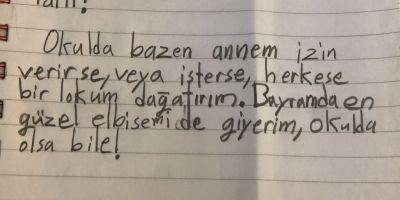 Okulda bazen annem izin
verirse, veya isterse, herkese
bir lokum dağatırım. Bayramda en
güzel elbisemi de giyerim, okulda
olsa bile!